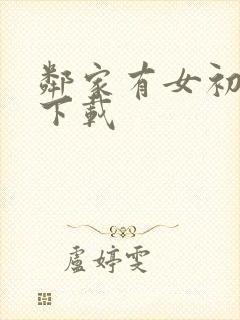 鄰家有女初
下載
盧婷雯